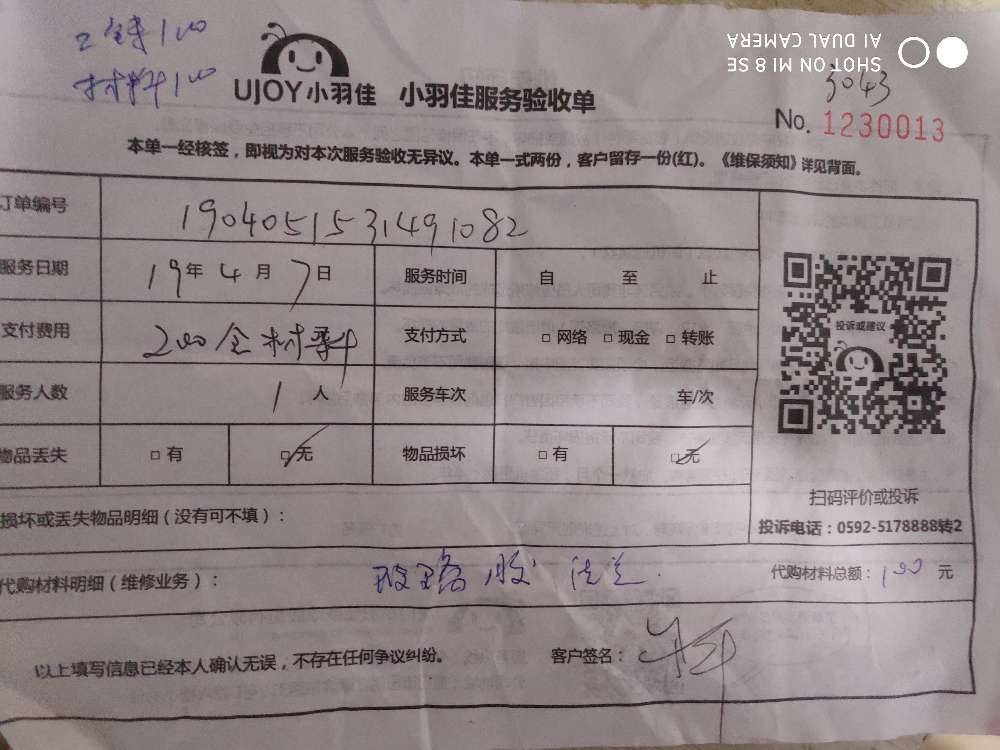 工钱100
材料100
UJOY小羽佳 小羽佳服务验收单
SHOT ON MI 8 SE
AI DUAL CAMERA
3043
No. 1230013
本单一经核签，即视为对本次服务验收无异议。本单一式两份，客户留存一份(红)。《维保须知》详见背面。
订单编号 1904051531491082
服务日期 19年4月7日 服务时间 自 至 止
支付费用 200含材料 支付方式 □网络 □现金 □转账
服务人数 1人 服务车次 车/次
物品丢失 □有 □无 物品损坏 □有 □无
投诉或建议
扫码评价或投诉
投诉电话：0592-5178888转2
损坏或丢失物品明细（没有可不填）：
代购材料明细（维修业务）： 玻璃胶 法兰. 代购材料总额：100元
以上填写信息已经本人确认无误，不存在任何争议纠纷。 客户签名：